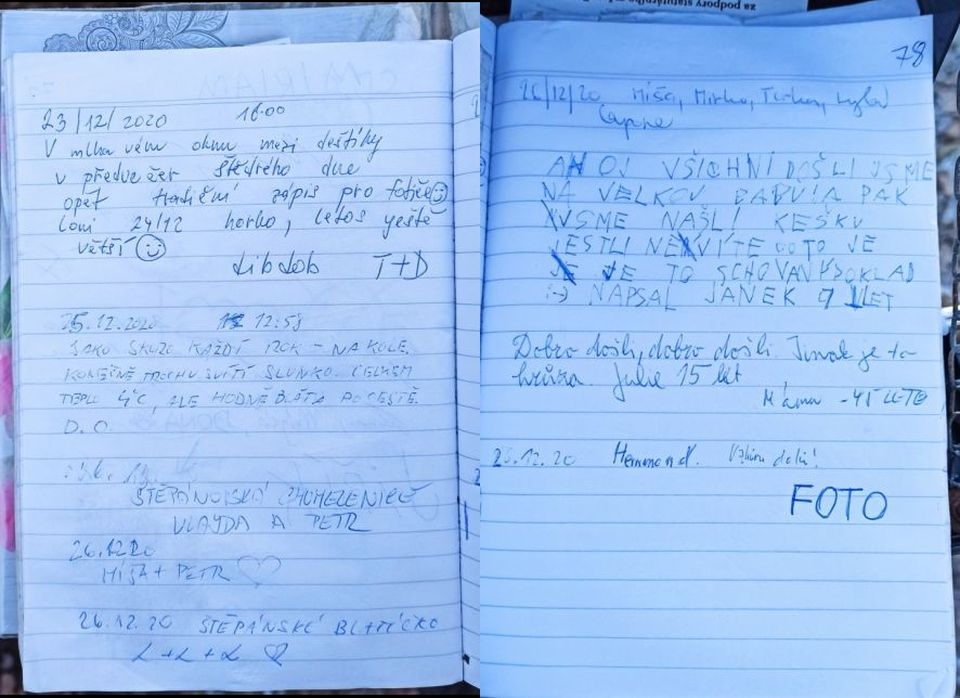 23/12/2020 16:00
V mlhavém oknu mezi deštíky
v předvečer Štědrého dne
opět tradiční zápis pro fotiče☺
Loni 24/12 horko, letos yeště
větší ☺
LibLob T+D
25.12.2020 12:58
JAKO SKORO KAŽDÝ ROK - NA KOLE.
KONEČNĚ TROCHU SVÍTÍ SLUNKO. CELKEM
TEPLO 4°C, ALE HODNĚ BLÁTA PO CESTĚ.
D.O.
ŠTĚPÁNOVSKÁ
VLAJDA A PETR
26.12.20
MÍŠA + PETR ♡
26.12.20 ŠTĚPÁNSKÉ BLATÍČKO
L+L+L ♡
za podpory statutárního
78
26/12/20 Míša, Mirka,
AHOJ VŠICHNI DOŠLI JSME
NA VELKOU A PAK
JSME NAŠLI KEŠKU
JESTLI NEVÍTE CO TO JE
JE TO SCHOVANÝ POKLAD
:-) NAPSAL JANEK 9 LET
Dobro došli, dobro došli. Jinak je to
hrůza. Julie 15 let
- 45 LETO
26.12.20 Hemmond. Vzhůru dolů!
FOTO